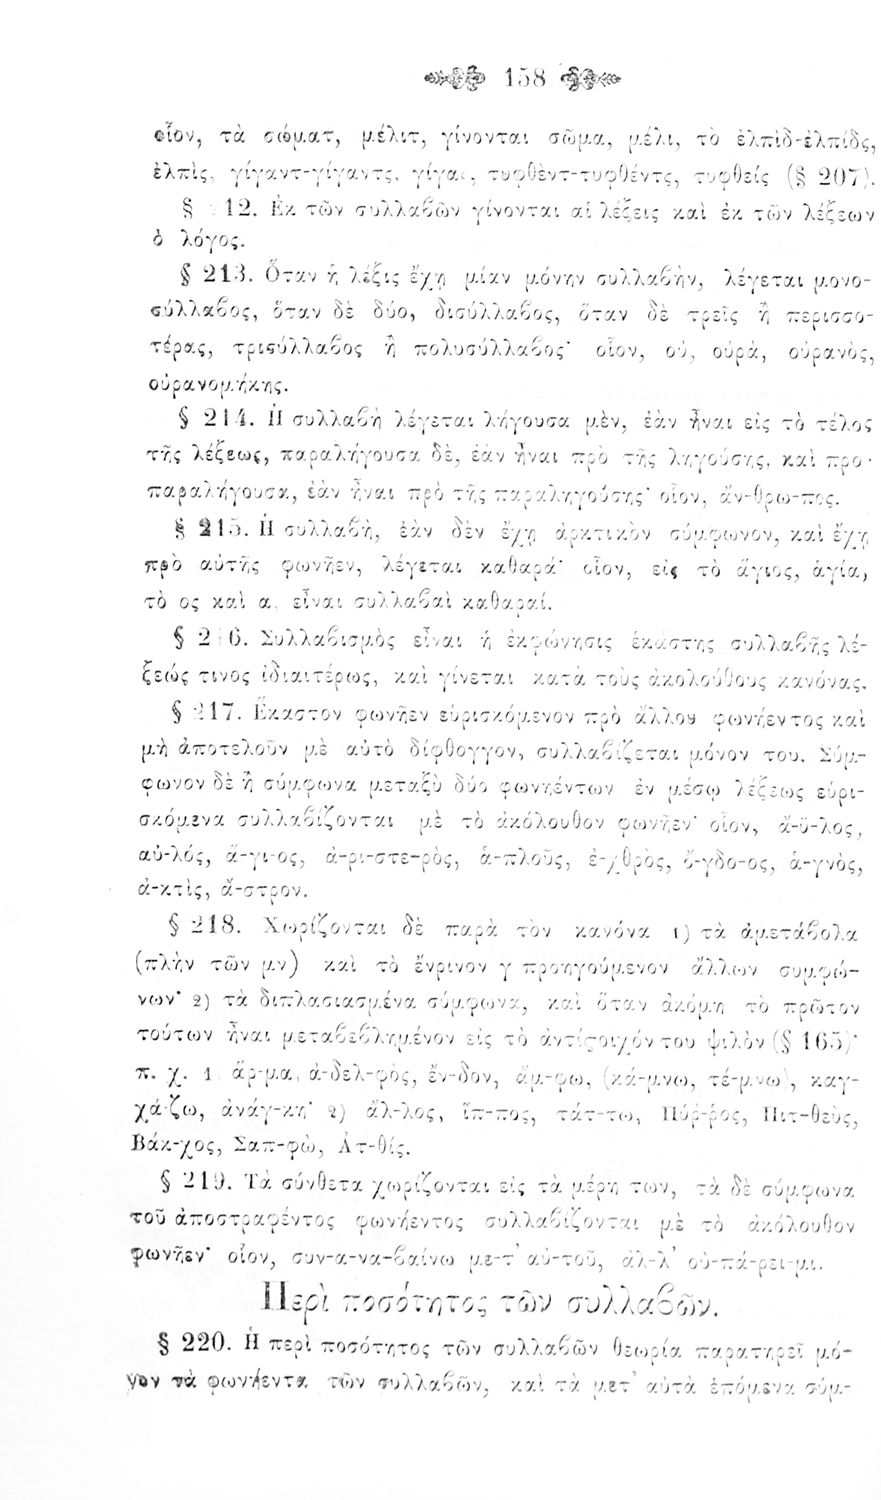 158
οἷον, τὰ σώματ, μέλιτ, γίνονται σῶμα, μέλι, τὸ ἐλπὶδ-ἐλπίδς,
ἐλπὶς, γίγαντ-γίγαντς, γίγας, τυφθὲντ-τυφθέντς, τυφθείς (§ 207).
§ 212. Ἐκ τῶν συλλαβῶν γίνονται αἱ λέξεις καὶ ἐκ τῶν λέξεων
ὁ λόγος.
§ 213. Ὅταν ἡ λέξις ἔχῃ μίαν μόνην συλλαβὴν, λέγεται μονο-
σύλλαβος, ὅταν δὲ δύο, δισύλλαβος, ὅταν δὲ τρεῖς ἢ περισσο-
τέρας, τρισύλλαβος ἢ πολυσύλλαβος· οἷον, οὐ, οὐρὰ, οὐρανὸς,
οὐρανομήκης.
§ 214. Ἡ συλλαβὴ λέγεται λήγουσα μὲν, ἐὰν ἦναι εἰς τὸ τέλος
τῆς λέξεως, παραλήγουσα δὲ, ἐὰν ἦναι πρὸ τῆς ληγούσης, καὶ προ-
παραλήγουσα, ἐὰν ἦναι πρὸ τῆς παραληγούσης· οἷον, ἄν-θρω-πος.
§ 215. Ἡ συλλαβὴ, ἐὰν δὲν ἔχῃ ἀρκτικὸν σύμφωνον, καὶ ἔχῃ
πρὸ αὐτῆς φωνῆεν, λέγεται καθαρά· οἷον, εἰς τὸ ἅγιος, ἁγία,
τὸ ος καὶ α, εἶναι συλλαβαὶ καθαραί.
§ 216. Συλλαβισμὸς εἶναι ἡ ἐκφώνησις ἑκάστης συλλαβῆς λέ-
ξεώς τινος ἰδιαιτέρως, καὶ γίνεται κατὰ τοὺς ἀκολούθους κανόνας.
§ 217. Ἕκαστον φωνῆεν εὑρισκόμενον πρὸ ἄλλου φωνήεντος καὶ
μὴ ἀποτελοῦν μὲ αὐτὸ δίφθογγον, συλλαβίζεται μόνον του. Σύμ-
φωνον δὲ ἢ σύμφωνα μεταξὺ δύο φωνηέντων ἐν μέσῳ λέξεως εὑρι-
σκόμενα συλλαβίζονται μὲ τὸ ἀκόλουθον φωνῆεν· οἷον, ἄ-ϋ-λος,
αὐ-λός, ἅ-γι-ος, ἀ-ρι-στε-ρὸς, ἁ-πλοῦς, ἐ-χθρὸς, ὄ-γδο-ος, ἁ-γνὸς,
ἀ-κτὶς, ἄ-στρον.
§ 218. Χωρίζονται δὲ παρὰ τὸν κανόνα 1) τὰ ἀμετάβολα
(πλὴν τῶν μν) καὶ τὸ ἔνρινον γ προηγούμενον ἄλλων συμφώ-
νων· 2) τὰ διπλασιασμένα σύμφωνα, καὶ ὅταν ἀκόμη τὸ πρῶτον
τούτων ἦναι μεταβεβλημένον εἰς τὸ ἀντίστοιχόν του ψιλὸν (§ 165)·
π. χ. 1 ἅρ-μα, ἀ-δελ-φὸς, ἔν-δον, ἄμ-φω, (κά-μνω, τέ-μνω), καγ-
χά-ζω, ἀνάγ-κη· 2) ἄλ-λος, ἵπ-πος, τάτ-τω, Πύρ-ρος, Πιτ-θεὺς,
Βάκ-χος, Σαπ-φὼ, Ἀτ-θίς.
§ 219. Τὰ σύνθετα χωρίζονται εἰς τὰ μέρη των, τὰ δὲ σύμφωνα
τοῦ ἀποστραφέντος φωνήεντος συλλαβίζονται μὲ τὸ ἀκόλουθον
φωνῆεν· οἷον, συν-α-να-βαίνω με-τ᾽ αὐ-τοῦ, ἀλ-λ᾽ οὐ-πά-ρει-μι.
Περὶ ποσότητος τῶν συλλαβῶν.
§ 220. Ἡ περὶ ποσότητος τῶν συλλαβῶν θεωρία παρατηρεῖ μό-
νον τὰ φωνήεντα τῶν συλλαβῶν, καὶ τὰ μετ᾽ αὐτὰ ἑπόμενα σύμ-